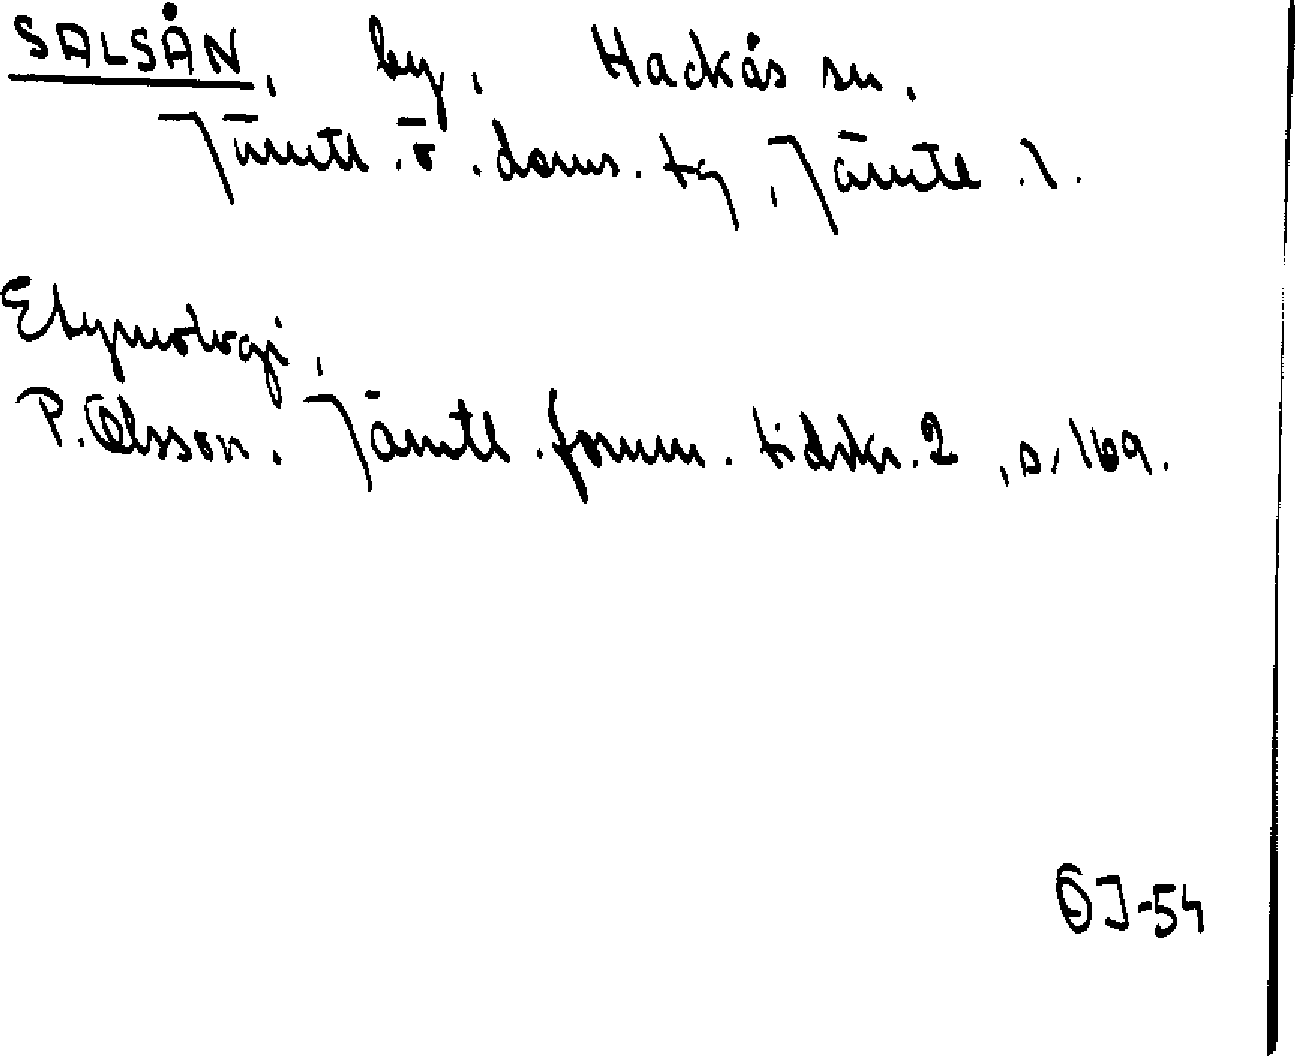 SALSÅN, by, Hackås sn.
Jämtl. ö. doms. tg, Jämtl. l.
Etymologi,
P. Olsson. Jämtl. fornm. tidskr. 2, s. 169.
ÖJ-54